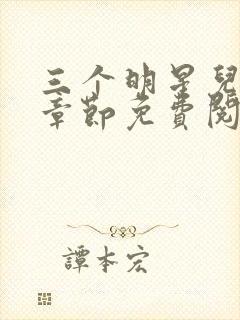 三个明星兒
章節免費閱
譚本宏